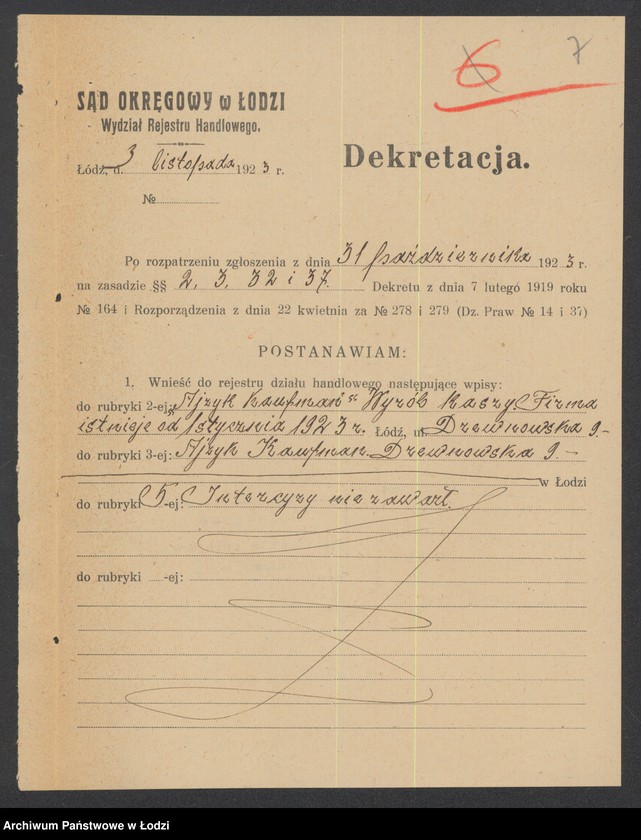 6 7
SĄD OKRĘGOWY w ŁODZI
Wydział Rejestru Handlowego.
Łódź, d. 3 listopada 1923 r.
Dekretacja.
№
Po rozpatrzeniu zgłoszenia z dnia 31 października 1923 r.
na zasadzie §§ 2, 3, 32 i 37. Dekretu z dnia 7 lutego 1919 roku
№ 164 i Rozporządzenia z dnia 22 kwietnia za № 278 i 279 (Dz. Praw № 14 i 37)
POSTANAWIAM:
1. Wnieść do rejestru działu handlowego następujące wpisy:
do rubryki 2-ej: „Ajzyk Kaufman" Wyrób kaszy. Firma
istnieje od 1 stycznia 1923 r. Łódź, ul. Drewnowska 9.-
do rubryki 3-ej: Ajzyk Kaufman. Drewnowska 9.-
w Łodzi
do rubryki 5-ej: Intercyzy nie zawarł.
do rubryki -ej:
Archiwum Państwowe w Łodzi